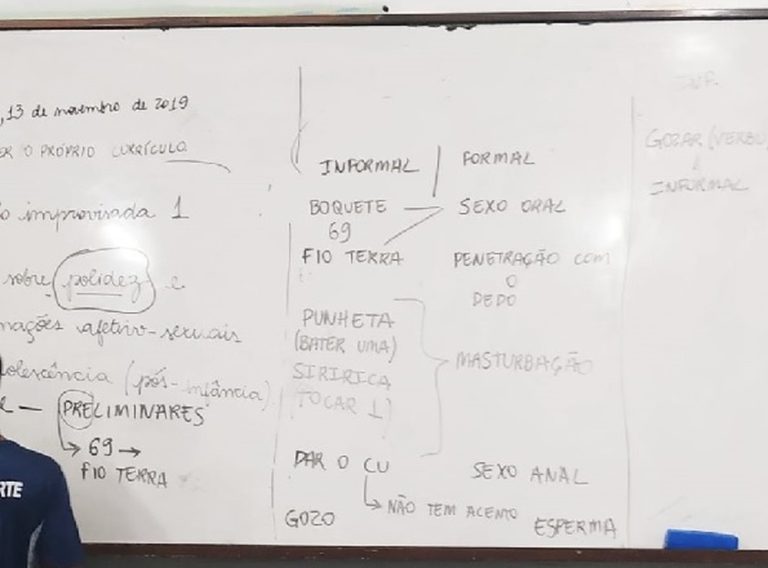 , 13 de novembro de 2019
O PRÓPRIO CURRÍCULO
improvisada 1
sobre polidez e
mações afetivo-sexuais
olescência (pós-infância)
e — PRELIMINARES
→ 69 →
FIO TERRA
INFORMAL | FORMAL
BOQUETE — SEXO ORAL
69
FIO TERRA PENETRAÇÃO COM
O
DEDO
PUNHETA
(BATER UMA)
SIRIRICA
(TOCAR 1)
MASTURBAÇÃO
DAR O CU SEXO ANAL
→ NÃO TEM ACENTO
GOZO ESPERMA
INF.
GOZAR (VERBO)
INFORMAL
RTE